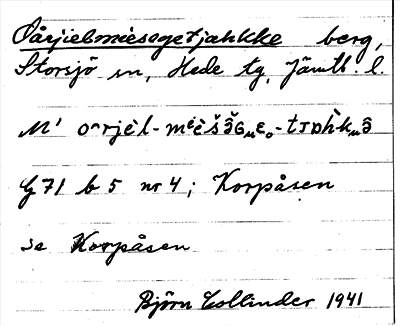 Oårjielmiesogetjahkke berg,
Storsjö sn, Hede tg, Jämtl. l.
M'
G 71 b 5 nr 4; Korpåsen
se Korpåsen
Björn Collinder 1941